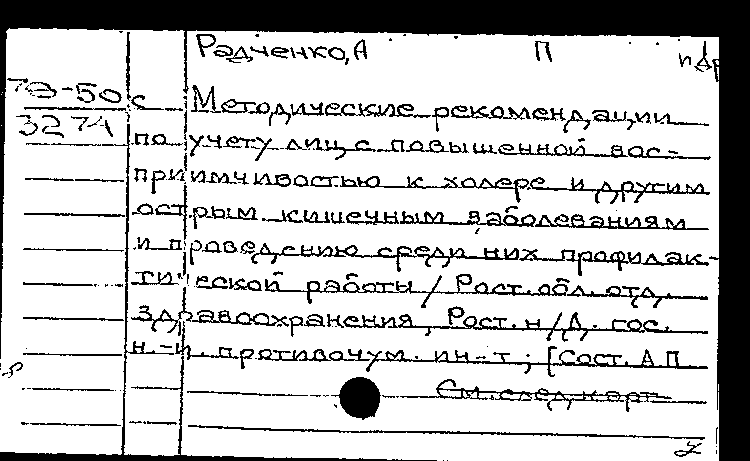 Радченко, А П п др
79-50 с Методические рекомендации
3274 по учету лиц с повышенной вос-
приимчивостью к холере и другим
острым кишечным заболеваниям
и проведению среди них профилак-
тической работы / Рост. обл. отд.
здравоохранения, Рост. н/Д. гос.
н.-и. противочум. ин-т; [Сост. А П
См. след. карт